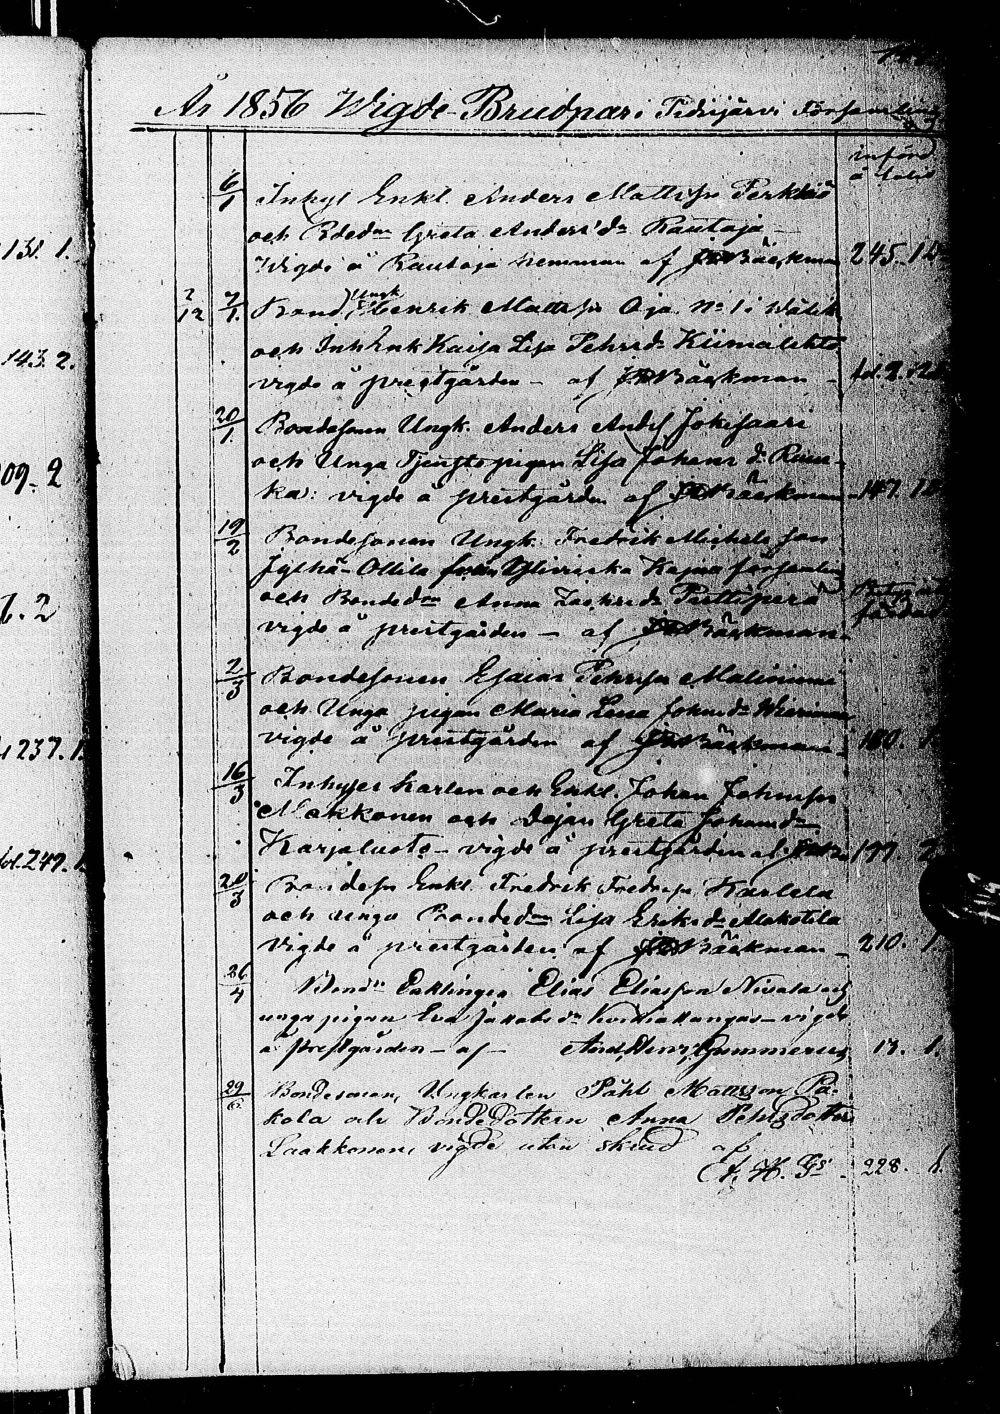 131. 1.
143. 2.
09. 2
6. 2
237. 1.
fol. 249.
År 1856 Wigde Brudpar i Pidisjärvi Församling
införd
å folio
6/1 Inhys Enkl. Anders Mattsson Perkkiö
och Bdedn Greta Andersdr Rautaja
Wigde å Rautaja hemman af Bäckman 245. 1
2/12 7/1. Bond Ungk Henrik Mattsson Oja No 1 i
och Inh Enk Kaisa Lisa Pehrsdr Kiimalehto
vigde å prestgården – af Bäckman – fol. 2.
20/1 Bondesonen Ungk. Anders Anders Jokisaari
och Unga Tjenstepigan Lisa Johans dr
ka: vigde å prestgården af Bäckman 147. 1
19/2 Bondesonen Ungk. Fredrik Michelsson
Jylhä-Ollila från Ylivieska Kapell församling
och Bondedn Anna Zachrisdr Puttoperä
vigde å prestgården – af Bäckman.
2/3 Bondesonen Esaias Pehrsson Maliniemi
och Unga pigan Maria Lena Johansdr
vigde å prestgården af Bäckman 180. 1.
16/3 Inhyses karlen och Enkl. Johan Johansson
Makkonen och Dejan Greta Johansdr
Karjaluoto – vigde å prestgården af 197. 2
20/3 Bondeson Enkl. Fredrik Fredrsson Karlela
och unga Bondedn Lisa Eriksdr Mokotila
vigde å prestgården af Bäckman – 210. 1.
26/4 Bondn Enklingen Elias Eliasson Nivala och
unga pigan Eva Jakobsdr – vigde
å prestgården – af – And. Henr. Gummerus 13. 1.
29/6 Bondesonen, Ungkarlen Påhl Mattsson Pa-
kola och Bondedottren Anna Pehrsdotter
Laakkonen, vigde utan skrud af
A. H. Gs. 228. 1.